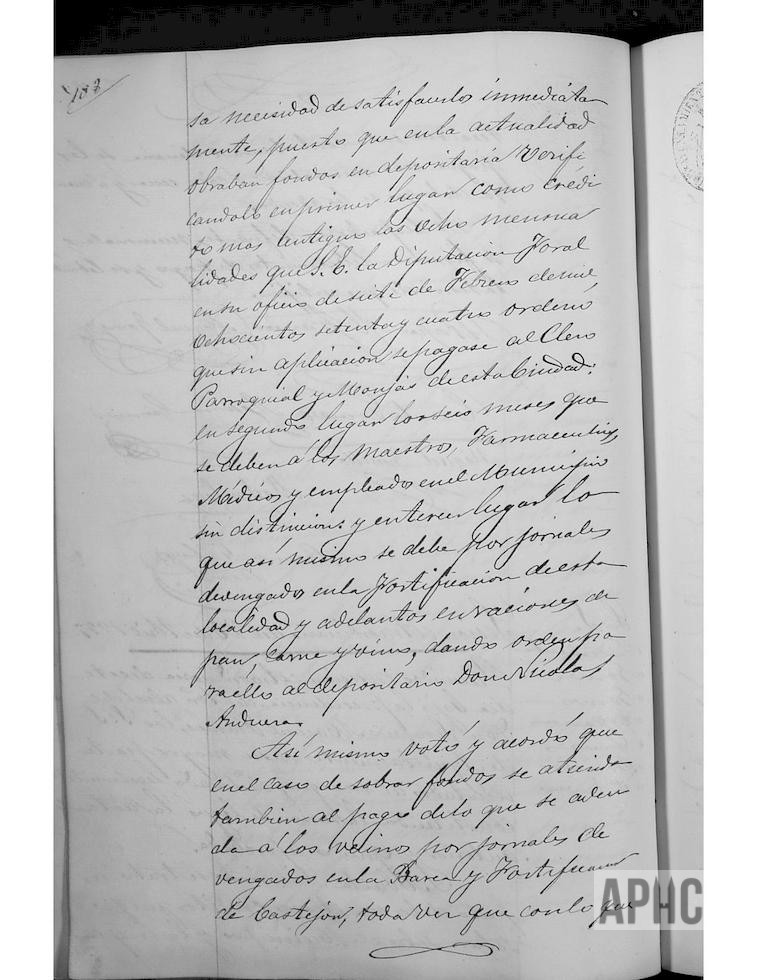 183
sa necesidad de satisfacerlos inmediata
mente, puesto que en la actualidad
obraban fondos en depositaria verifi
candolo en primer lugar como credi
to mas antiguo las ocho mensua
lidades que S. E. la Diputacion Foral
en su oficio de siete de Febrero de mil
ochocientos setenta y cuatro ordenó
que sin aplicacion se pagase al Clero
Parroquial y Monjas de esta Ciudad:
en segundo lugar los seis meses que
se deben á los Maestros, Farmaceuticos,
Médicos y empleados en el Municipio
sin distincion: y en tercer lugar lo
que así mismo se debe por jornales
devengados en la Fortificacion de esta
localidad y adelantos en raciones de
pan, carne y vino, dando orden pa
ra ello al depositario Don Nicolas
Andueza.
Así mismo votó y acordó que
en el caso de sobrar fondos se atienda
tambien al pago de lo que se aden
da á los vecinos por jornales de
vengados en la Barca y Fortificacion
de Castejon, toda vez que con lo que
APHC